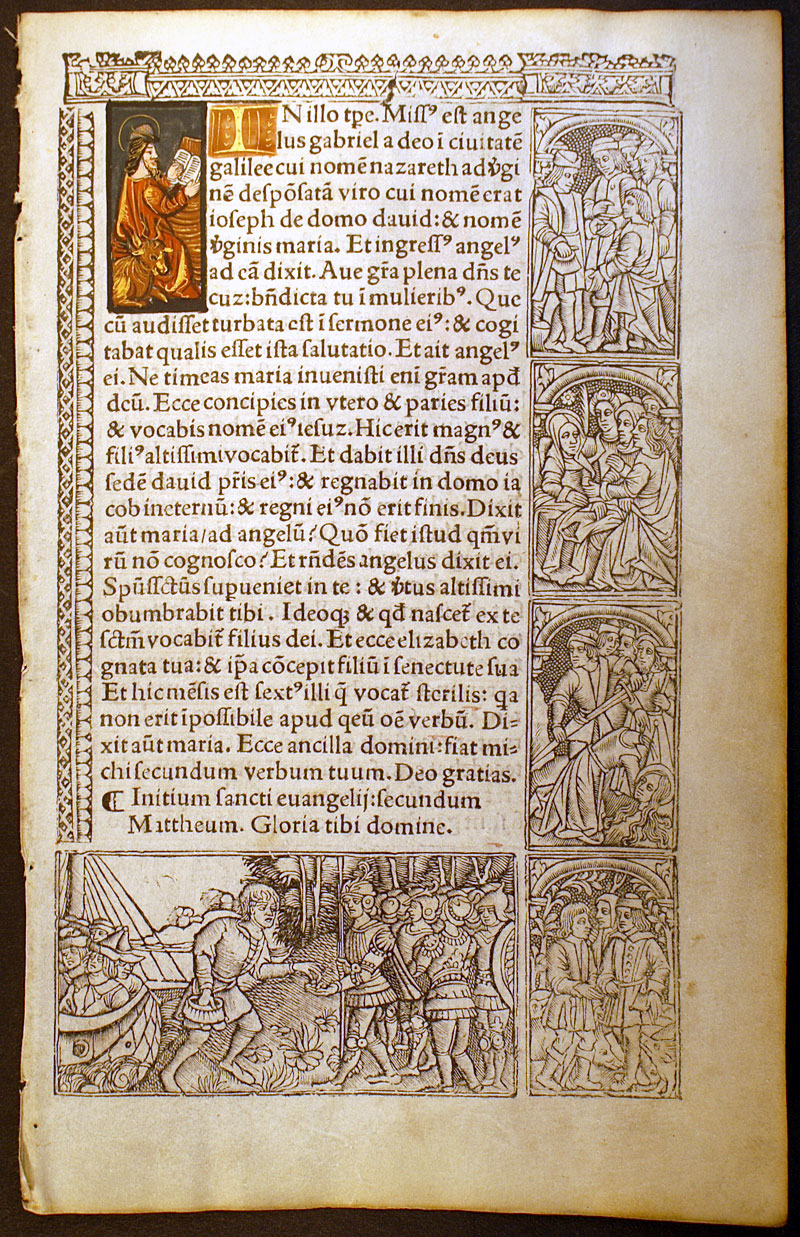 IN illo tp̄e. Missꝰ est ange
lus gabriel a deo ī ciuitatē
galilee cui nomē nazareth ad v̄gi
nē despōsatā viro cui nomē erat
ioseph de domo dauid: & nomē
v̄ginis maria. Et ingressꝰ angelꝰ
ad eā dixit. Aue gr̄a plena dn̄s te
cuz: bn̄dicta tu ī mulieribꝰ. Que
cū audisset turbata est ī sermone eiꝰ: & cogi
tabat qualis esset ista salutatio. Et ait angelꝰ
ei. Ne timeas maria inuenisti eni gr̄am apd̄
deū. Ecce concipies in vtero & paries filiū:
& vocabis nomē eiꝰ iesuz. Hic erit magnꝰ &
filiꝰ altissimi vocabit̄. Et dabit illi dn̄s deus
sedē dauid pr̄is eiꝰ: & regnabit in domo ia
cob in eternū: & regni eiꝰ nō erit finis. Dixit
aūt maria/ad angelū? Quō fiet istud qm̄ vi
rū nō cognosco? Et rn̄dēs angelus dixit ei.
Spūssctūs supueniet in te: & v̄tus altissimi
obumbrabit tibi. Ideoqꝫ & qd̄ nascet̄ ex te
sctm̄ vocabit̄ filius dei. Et ecce elizabeth co
gnata tua: & ip̄a cōcepit filiū ī senectute sua
Et hic mēsis est sextꝰ illi q̄ vocat̄ sterilis: qa
non erit īpossibile apud qeū oē verbū. Di-
xit aūt maria. Ecce ancilla domini: fiat mi-
chi secundum verbum tuum. Deo gratias.
¶ Initium sancti euangelij: secundum
Mattheum. Gloria tibi domine.